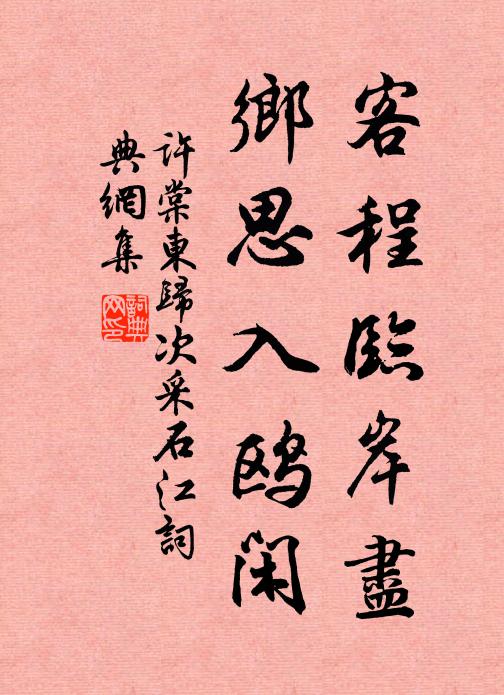 客程臨岸盡
鄉思入鷗閑
許棠東歸次采石江詞
典網集
詞典網印